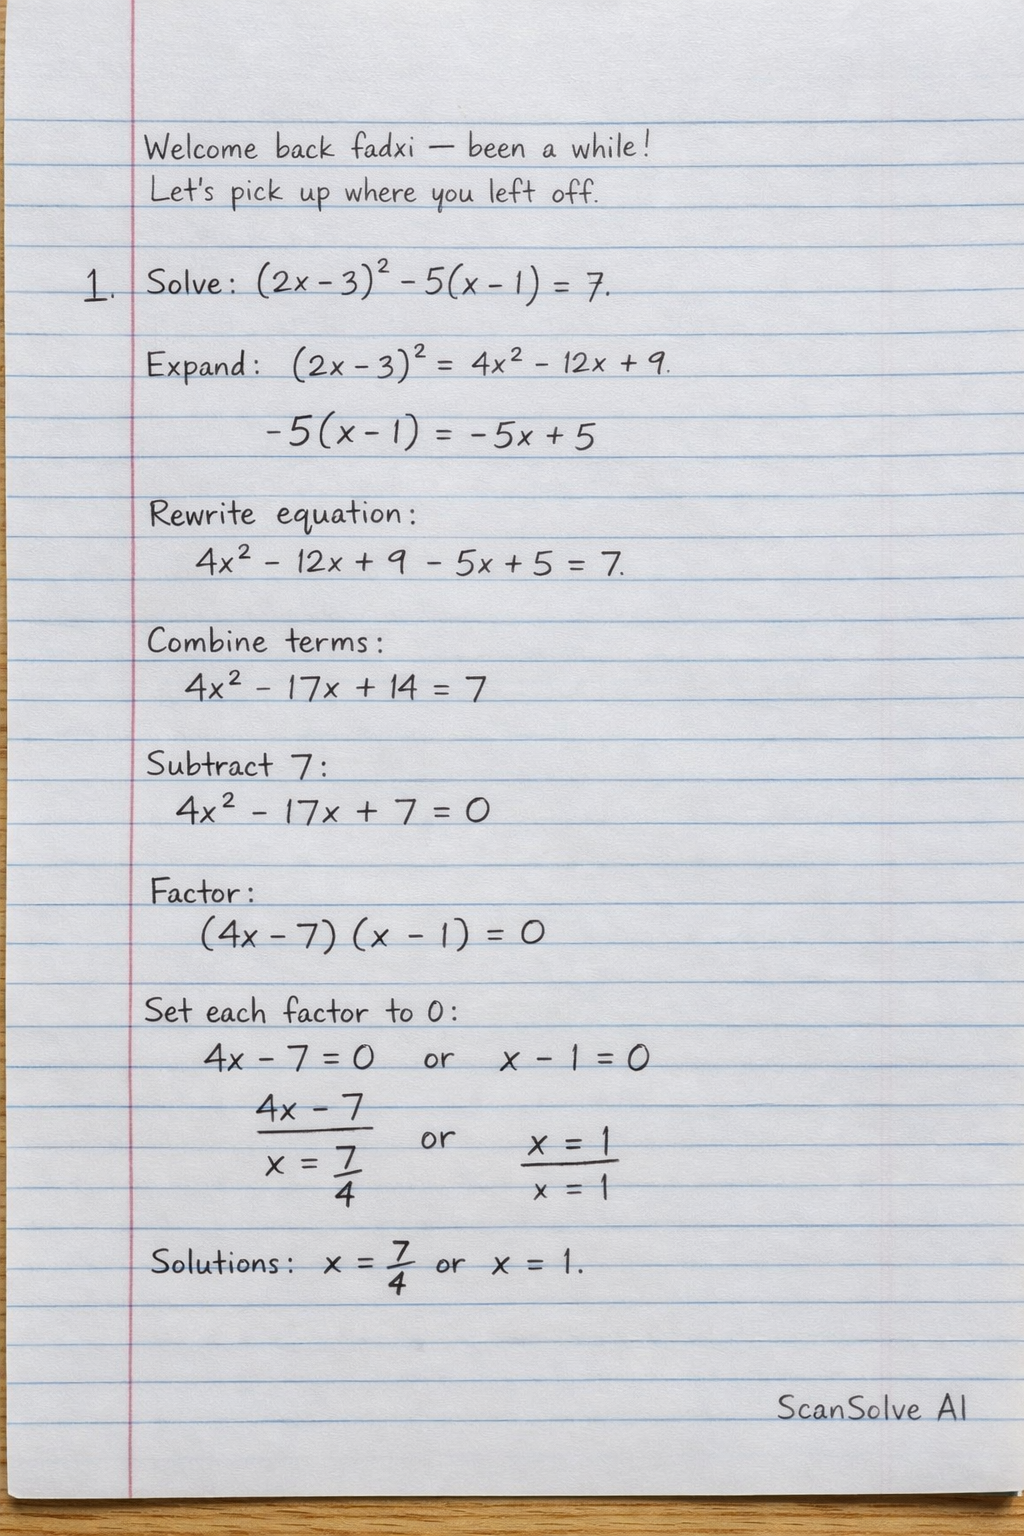 Welcome back fadxi — been a while!
Let's pick up where you left off.
1. Solve: (2x - 3)² - 5(x - 1) = 7.
Expand: (2x - 3)² = 4x² - 12x + 9.
-5(x - 1) = -5x + 5
Rewrite equation:
4x² - 12x + 9 - 5x + 5 = 7.
Combine terms:
4x² - 17x + 14 = 7
Subtract 7:
4x² - 17x + 7 = 0
Factor:
(4x - 7) (x - 1) = 0
Set each factor to 0:
4x - 7 = 0 or x - 1 = 0
4x - 7 or x = 1
x = 7/4 x = 1
Solutions: x = 7/4 or x = 1.
ScanSolve AI